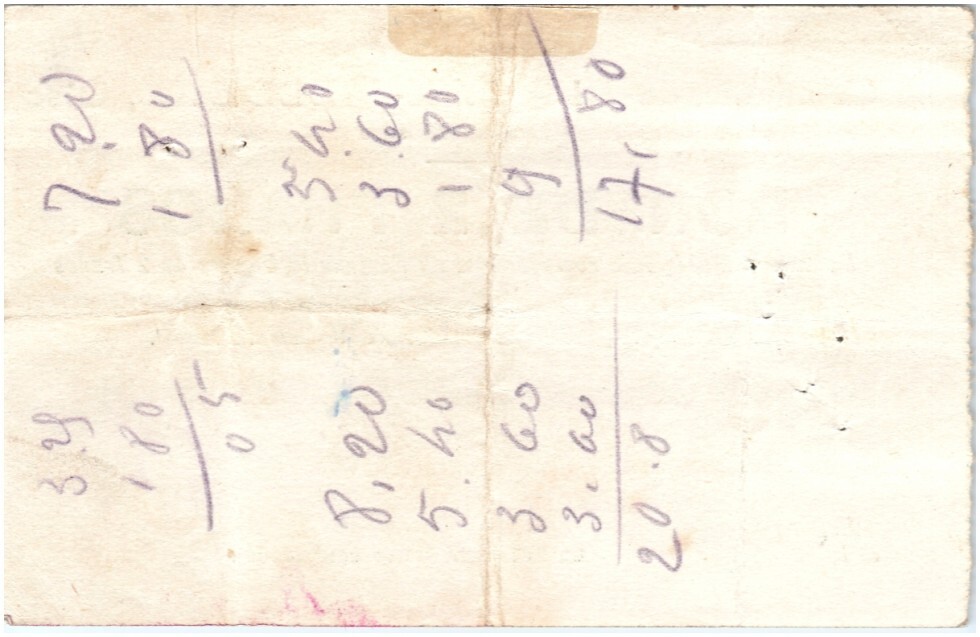 1 80
05
8,20
5.40
3 60
3.60
20.8
7.20
1 80
3.40
3.60
1 80
9
17,80